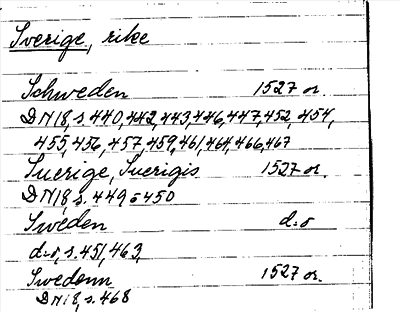 Sverige, rike
Schweden 1527 or.
DN18, s. 440, 442, 443, 446, 447, 452, 454,
455, 456, 457, 459, 461, 464, 466, 467
Suerige, Suerigis 1527 or.
DN18, s. 449 o 450
Sweden d:o
d:o, s. 451, 463,
Swedenn 1527 or.
DN18, s. 468